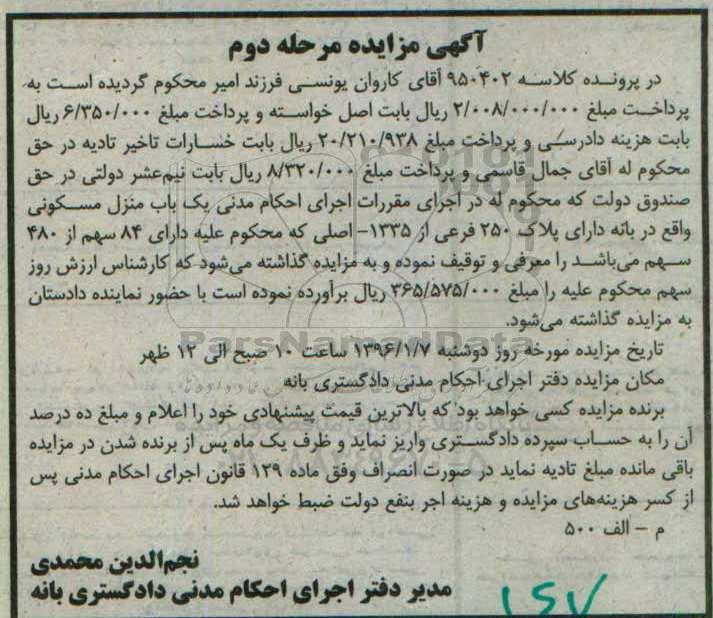 آگهی مزایده مرحله دوم
در پرونده کلاسه ۹۵۰۴۰۲ آقای کاروان یونسی فرزند امیر محکوم گردیده است به
پرداخت مبلغ ۲/۰۰۸/۰۰۰/۰۰۰ ریال بابت اصل خواسته و پرداخت مبلغ ۶/۳۵۰/۰۰۰ ریال
بابت هزینه دادرسی و پرداخت مبلغ ۲۰/۲۱۰/۹۳۸ ریال بابت خسارات تاخیر تادیه در حق
محکوم له آقای جمال قاسمی و پرداخت مبلغ ۸/۳۲۰/۰۰۰ ریال بابت نیم‌عشر دولتی در حق
صندوق دولت که محکوم له در اجرای مقررات اجرای احکام مدنی یک باب منزل مسکونی
واقع در بانه دارای پلاک ۲۵۰ فرعی از ۱۳۳۵- اصلی که محکوم علیه دارای ۸۴ سهم از ۴۸۰
سهم می‌باشد را معرفی و توقیف نموده و به مزایده گذاشته می‌شود که کارشناس ارزش روز
سهم محکوم علیه را مبلغ ۳۶۵/۵۷۵/۰۰۰ ریال برآورده نموده است با حضور نماینده دادستان
به مزایده گذاشته می‌شود.
ParsNamadData
تاریخ مزایده مورخه روز دوشنبه ۱۳۹۶/۱/۷ ساعت ۱۰ صبح الی ۱۲ ظهر
مکان مزایده دفتر اجرای احکام مدنی دادگستری بانه
برنده مزایده کسی خواهد بود که بالاترین قیمت پیشنهادی خود را اعلام و مبلغ ده درصد
آن را به حساب سپرده دادگستری واریز نماید و ظرف یک ماه پس از برنده شدن در مزایده
باقی مانده مبلغ تادیه نماید در صورت انصراف وفق ماده ۱۲۹ قانون اجرای احکام مدنی پس
از کسر هزینه‌های مزایده و هزینه اجر بنفع دولت ضبط خواهد شد.
م – الف ۵۰۰
نجم‌الدین محمدی
مدیر دفتر اجرای احکام مدنی دادگستری بانه